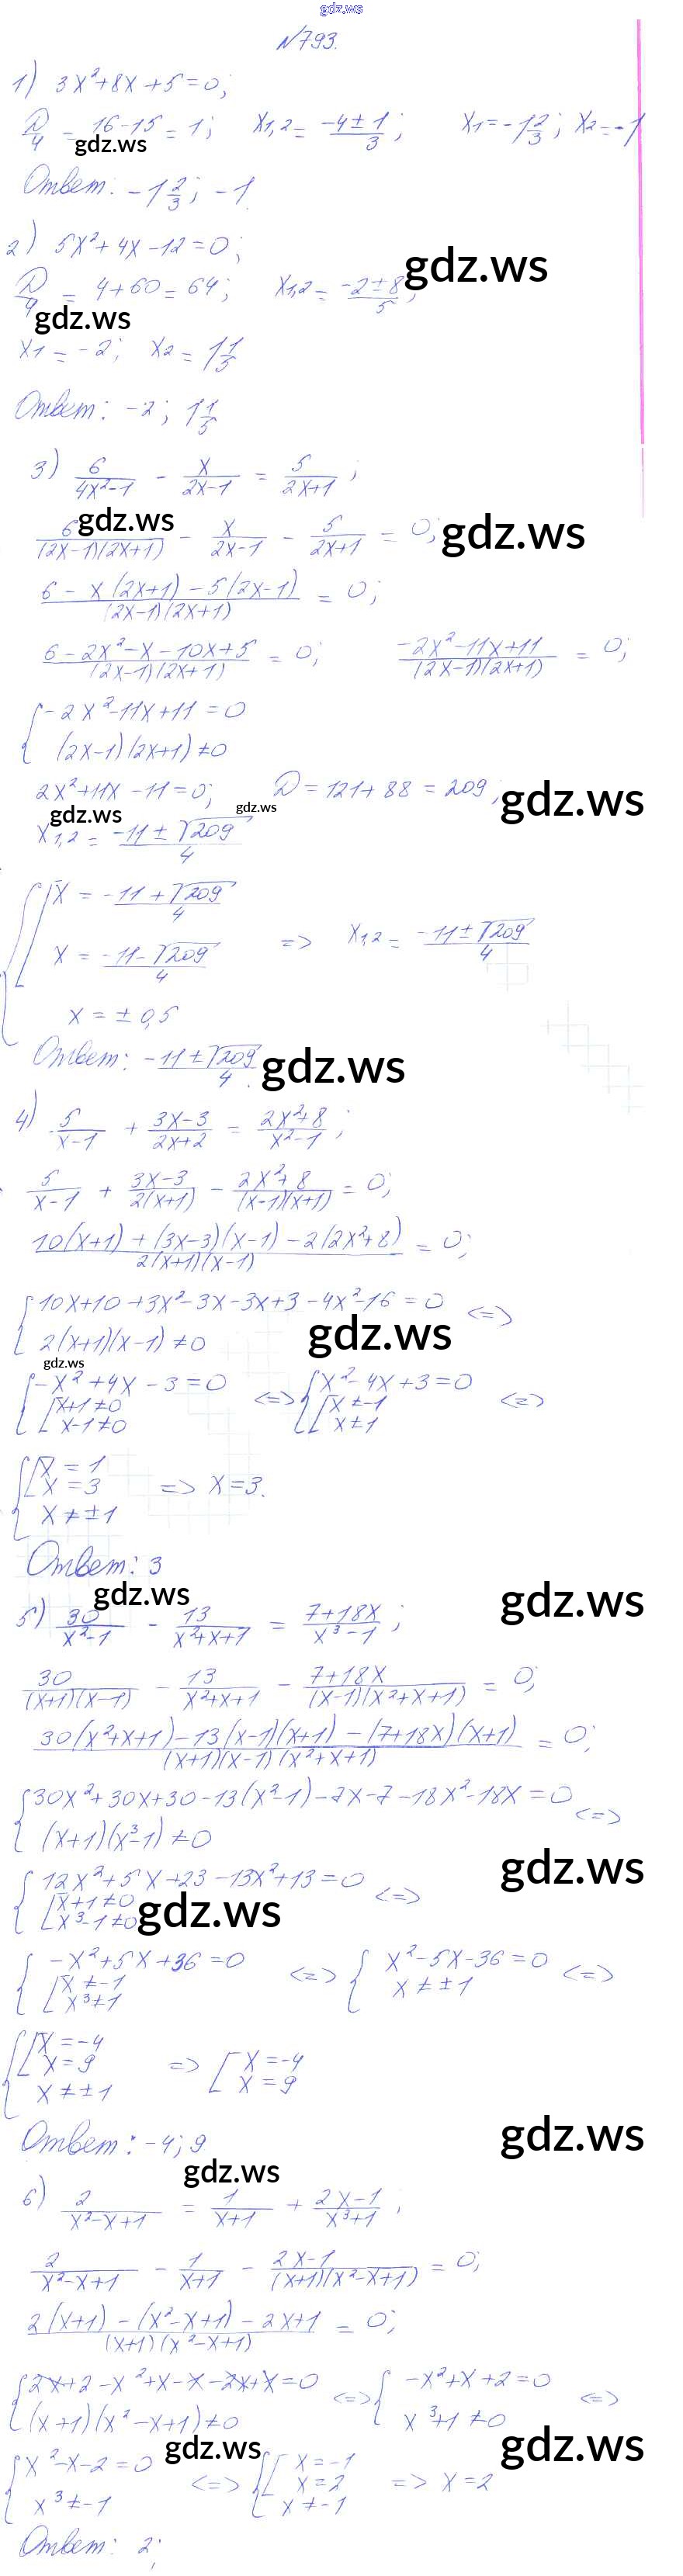 gdz.ws
№793.
1) 3x²+8x+5=0;
D/4 = 16-15 = 1; x1,2 = (-4±1)/3; x1=-1 2/3; x2=-1
gdz.ws
Ответ: -1 2/3; -1.
2) 5x²+4x-12=0;
gdz.ws
D/4 = 4+60=64; x1,2 = (-2±8)/5;
gdz.ws
x1 = -2; x2 = 1 1/5
Ответ: -2; 1 1/5
3) 6/(4x²-1) - x/(2x-1) = 5/(2x+1);
gdz.ws
6/((2x-1)(2x+1)) - x/(2x-1) - 5/(2x+1) = 0;
gdz.ws
(6-x(2x+1)-5(2x-1))/((2x-1)(2x+1)) = 0;
(6-2x²-x-10x+5)/((2x-1)(2x+1)) = 0; (-2x²-11x+11)/((2x-1)(2x+1)) = 0;
{-2x²-11x+11=0
(2x-1)(2x+1)≠0
2x²+11x-11=0; D=121+88=209;
gdz.ws
gdz.ws gdz.ws
x1,2 = (-11±√209)/4
{[x = (-11+√209)/4
x = (-11-√209)/4 => x1,2 = (-11±√209)/4
x = ±0,5
Ответ: (-11±√209)/4.
gdz.ws
4) 5/(x-1) + (3x-3)/(2x+2) = (2x²+8)/(x²-1);
5/(x-1) + (3x-3)/(2(x+1)) - (2x²+8)/((x-1)(x+1)) = 0;
(10(x+1)+(3x-3)(x-1)-2(2x²+8))/(2(x+1)(x-1)) = 0;
{10x+10+3x²-3x-3x+3-4x²-16=0 <=>
2(x+1)(x-1)≠0
gdz.ws
gdz.ws
{-x²+4x-3=0 <=> {x²-4x+3=0 <=>
[x+1≠0 [x≠-1
x-1≠0 x≠1
{[x=1
x=3 => x=3.
x≠±1
Ответ: 3
gdz.ws
gdz.ws
5) 30/(x²-1) - 13/(x²+x+1) = (7+18x)/(x³-1);
30/((x+1)(x-1)) - 13/(x²+x+1) - (7+18x)/((x-1)(x²+x+1)) = 0;
(30(x²+x+1)-13(x-1)(x+1)-(7+18x)(x+1))/((x+1)(x-1)(x²+x+1)) = 0;
{30x²+30x+30-13(x²-1)-7x-7-18x²-18x=0 <=>
(x+1)(x³-1)≠0
gdz.ws
{12x²+5x+23-13x²+13=0 <=>
[x+1≠0
x³-1≠0
gdz.ws
{-x²+5x+36=0 <=> {x²-5x-36=0 <=>
[x≠-1 x≠±1
x³≠1
{[x=-4
x=9 => [x=-4
x≠±1 x=9
Ответ: -4; 9
gdz.ws
gdz.ws
6) 2/(x²-x+1) = 1/(x+1) + (2x-1)/(x³+1);
2/(x²-x+1) - 1/(x+1) - (2x-1)/((x+1)(x²-x+1)) = 0;
(2(x+1)-(x²-x+1)-2x+1)/((x+1)(x²-x+1)) = 0;
{2x+2-x²+x-x-2x+x=0 <=> {-x²+x+2=0 <=>
(x+1)(x²-x+1)≠0 x³+1≠0
gdz.ws
gdz.ws
{x²-x-2=0 <=> {[x=-1
x³≠-1 x=2 => x=2
x≠-1
Ответ: 2;